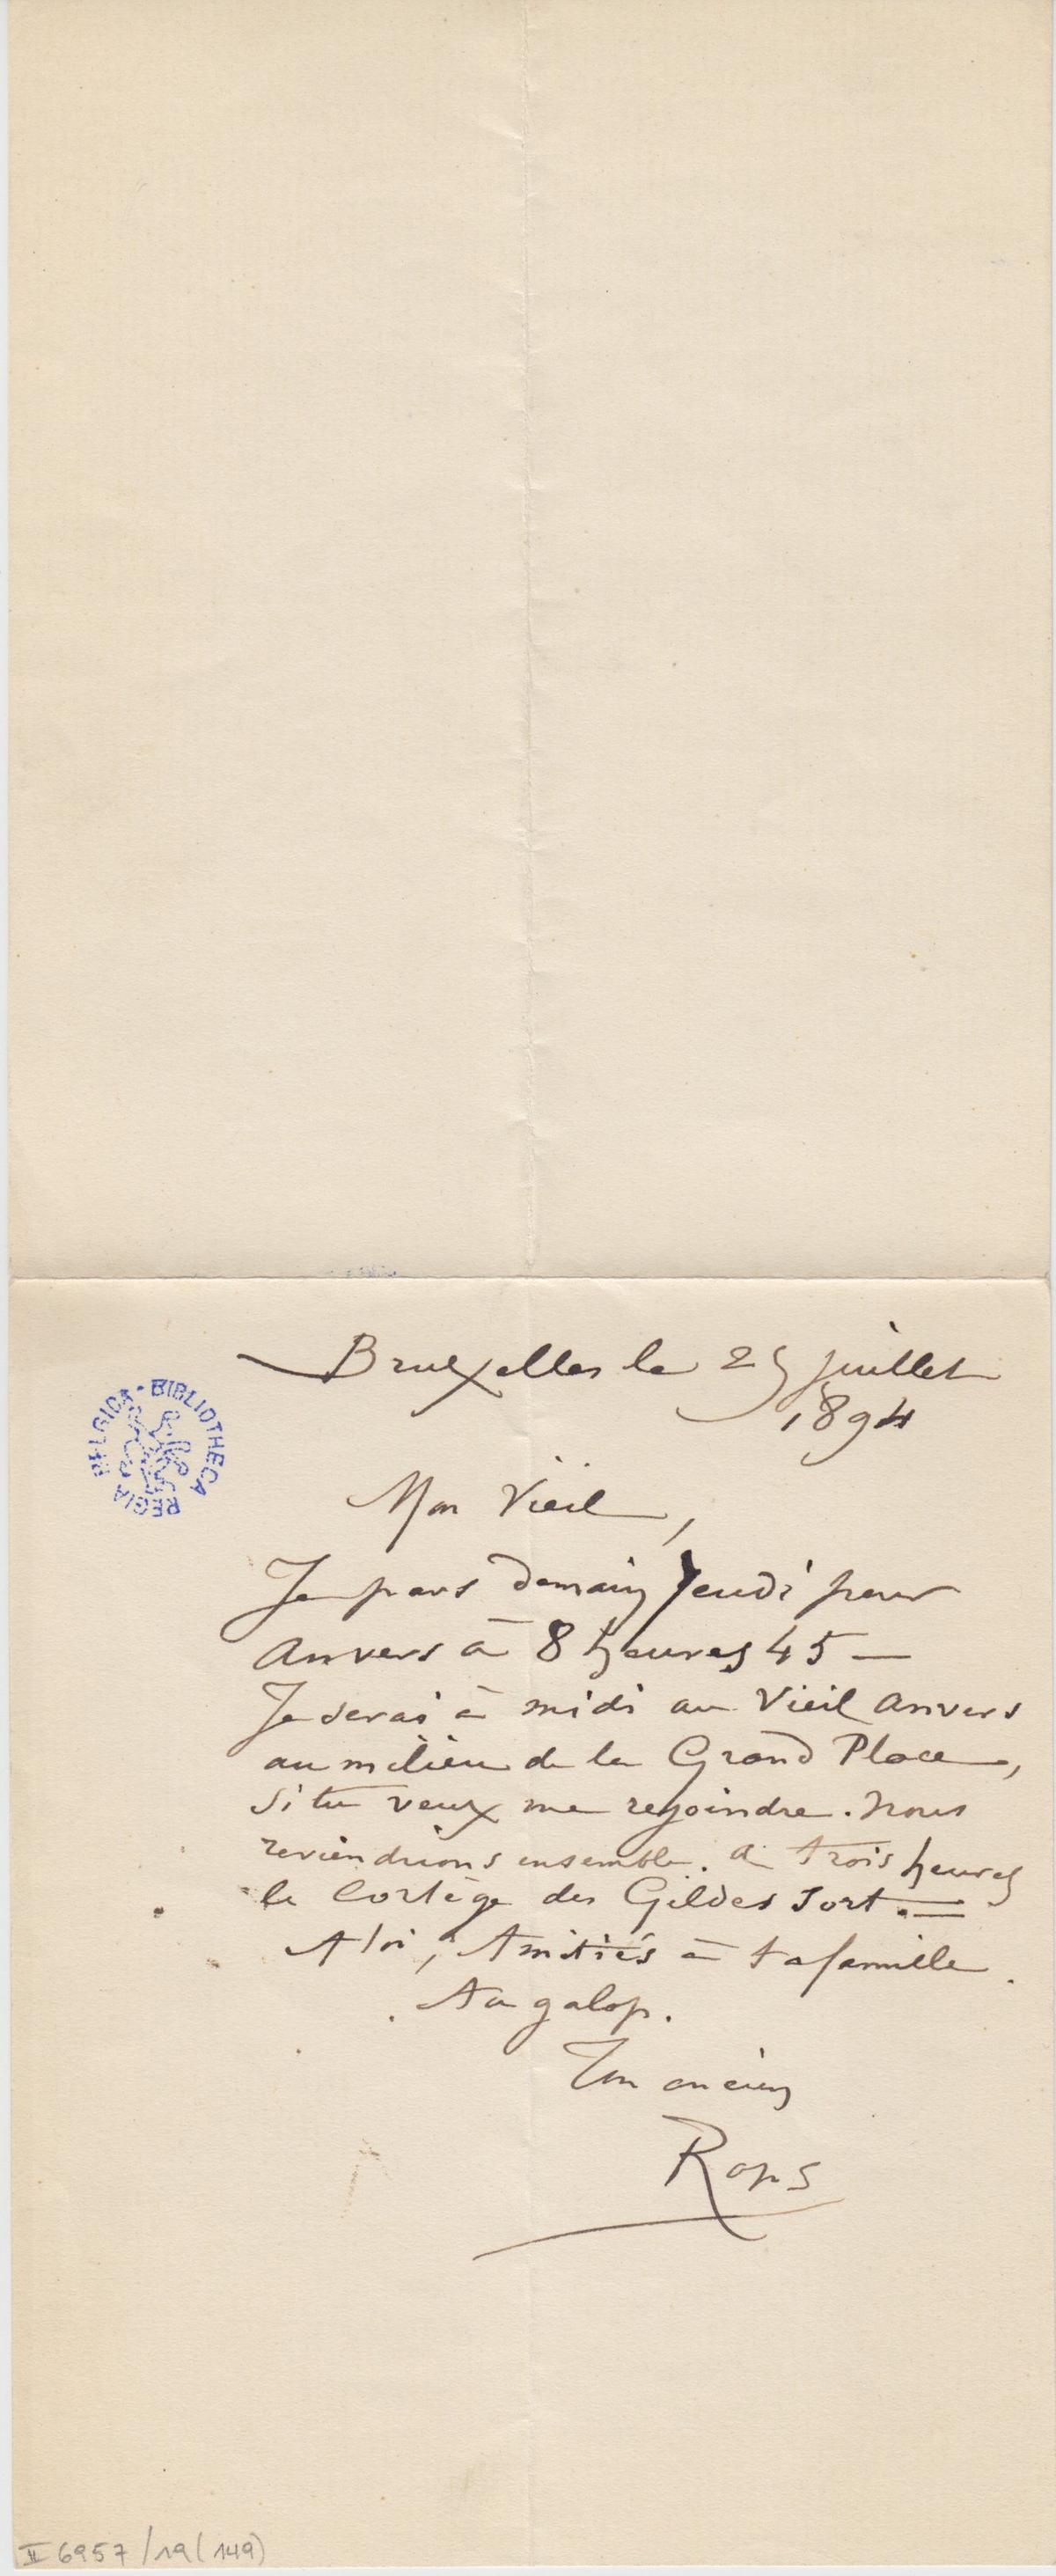 Bruxelles le 25 juillet
1894
Mon Vieil,
Je pars demain Jeudi pour
Anvers à 8 heures 45 —
Je serai à midi au Vieil Anvers
au milieu de la Grand Place,
si tu veux me rejoindre. Nous
reviendrions ensemble. à trois heures
le Cortège des Gildes sort. =
A toi, Amitiés à ta famille.
Au galop.
Ton ancien
Rops
BIBLIOTHECA REGIA BELGICA
II 6957 / 19 (149)